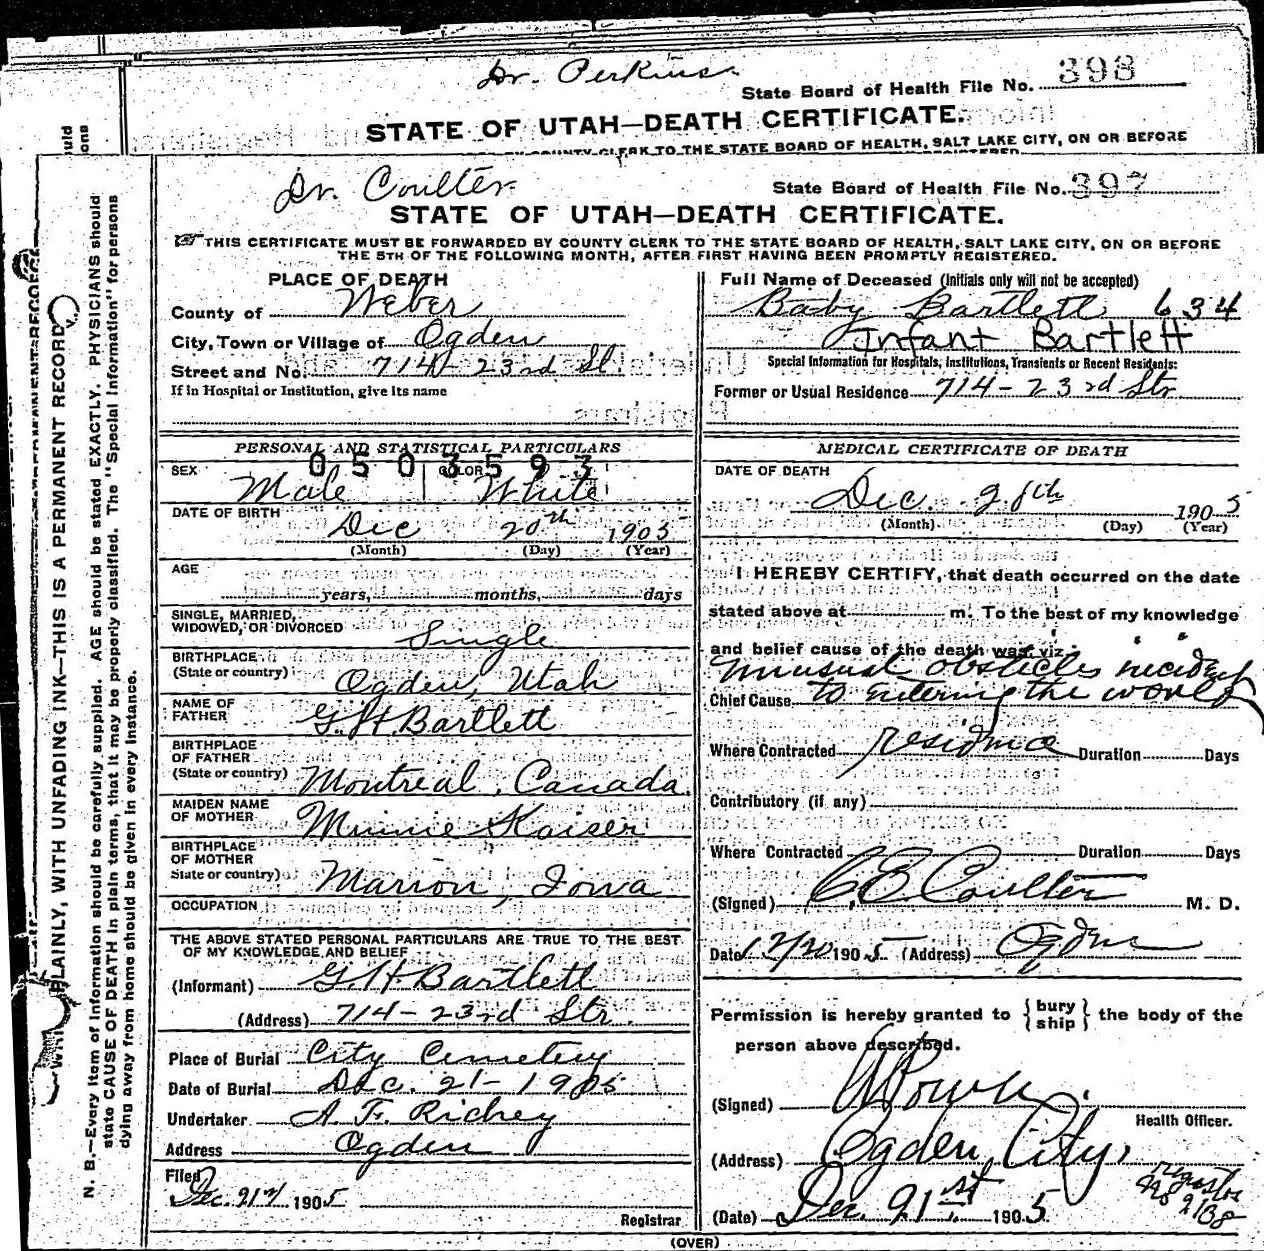 Dr. Perkins
State Board of Health File No. 398
STATE OF UTAH—DEATH CERTIFICATE.
COUNTY CLERK TO THE STATE BOARD OF HEALTH, SALT LAKE CITY, ON OR BEFORE
Dr. Coulter
State Board of Health File No. 397
STATE OF UTAH—DEATH CERTIFICATE.
THIS CERTIFICATE MUST BE FORWARDED BY COUNTY CLERK TO THE STATE BOARD OF HEALTH, SALT LAKE CITY, ON OR BEFORE
THE 5TH OF THE FOLLOWING MONTH, AFTER FIRST HAVING BEEN PROMPTLY REGISTERED.
PLACE OF DEATH
County of Weber
City, Town or Village of Ogden
Street and No. 714 - 23rd St.
If in Hospital or Institution, give its name
Full Name of Deceased (Initials only will not be accepted)
Baby Bartlett 634
Infant Bartlett
Special Information for Hospitals, Institutions, Transients or Recent Residents:
Former or Usual Residence 714 - 23rd Str.
PERSONAL AND STATISTICAL PARTICULARS
0503593
SEX Male COLOR White
DATE OF BIRTH
Dec 20th 1905
(Month) (Day) (Year)
AGE
years, months, days
SINGLE, MARRIED,
WIDOWED, OR DIVORCED Single
BIRTHPLACE
(State or country) Ogden, Utah
NAME OF
FATHER G. H. Bartlett
BIRTHPLACE
OF FATHER
(State or country) Montreal, Canada.
MAIDEN NAME
OF MOTHER Minnie Kaiser
BIRTHPLACE
OF MOTHER
State or country) Marion, Iowa
OCCUPATION
THE ABOVE STATED PERSONAL PARTICULARS ARE TRUE TO THE BEST
OF MY KNOWLEDGE AND BELIEF
(Informant) G. H. Bartlett
(Address) 714 - 23rd Str.
Place of Burial City Cemetery
Date of Burial Dec. 21 - 1905
Undertaker A. F. Richey
Address Ogden
Filed
Dec. 21 1905
Registrar
MEDICAL CERTIFICATE OF DEATH
DATE OF DEATH
Dec. 20th 1905
(Month) (Day) (Year)
I HEREBY CERTIFY, that death occurred on the date
stated above at m. To the best of my knowledge
and belief cause of the death was, viz:
unusual obstacles incident
Chief Cause to entering the world
Where Contracted residence Duration Days
Contributory (if any)
Where Contracted Duration Days
(Signed) C E Coulter M. D.
Date 12/20 1905 (Address) Ogden
Permission is hereby granted to {bury
ship} the body of the
person above described.
(Signed)
Health Officer.
(Address) Ogden City,
(Date) Dec. 21st 1905
2138
(OVER)
WRITE PLAINLY, WITH UNFADING INK—THIS IS A PERMANENT RECORD
N. B.—Every item of information should be carefully supplied. AGE should be stated EXACTLY. PHYSICIANS should
state CAUSE OF DEATH in plain terms, that it may be properly classified. The "Special Information" for persons
dying away from home should be given in every instance.